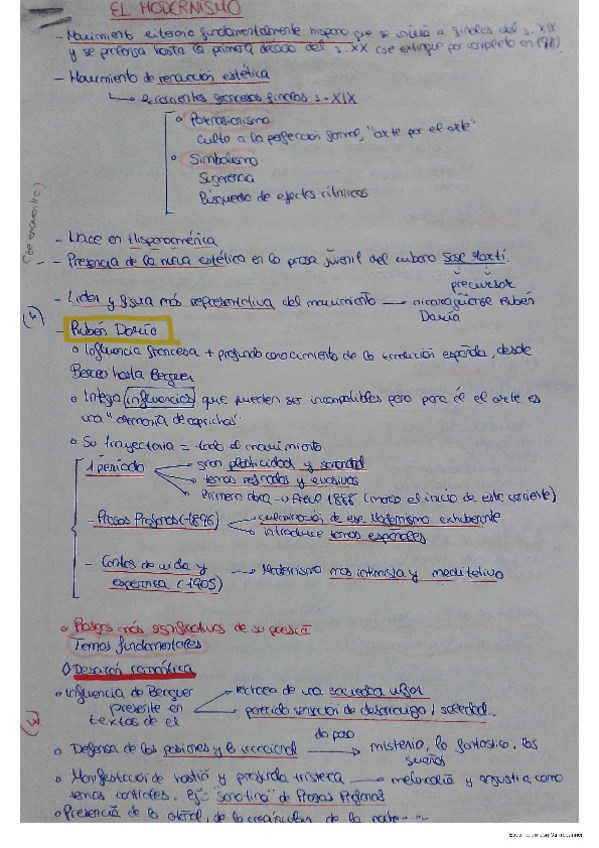 EL MODERNISMO
- Movimiento literario fundamentalmente hispano que se inicia a finales del s. XIX
y se prolonga hasta la primera década del s. XX (se extingue por completo en
- Movimiento de renovación estética
2 corrientes francesas finales s-XIX
o Parnasianismo
Culto a la perfección formal, "arte por el arte"
o Simbolismo
Sugerencia
Búsqueda de efectos rítmicos
(se encuentra)
- Nace en Hispanoamérica
- Presencia de la nueva estética en la prosa juvenil del cubano José Martí.
precursor
- Líder y figura más representativa del movimiento → nicaragüense Rubén
Darío
- Rubén Darío
o Influencia francesa + profundo conocimiento de la tradición española, desde
Berceo hasta Becquer
o Integra influencias que pueden ser incompatibles pero para él el arte es
una "armonía de caprichos"
o Su trayectoria = todo el movimiento
1 período → gran plasticidad y sonoridad
→ temas refinados y evasivos
→ Primera obra → Azul 1888 (marca el inicio de esta corriente)
- Prosas Profanas (1896) → culminación de ese Modernismo exhuberante
→ introduce temas españoles
- Cantos de vida y
esperanza (1905) → Modernismo más intimista y meditativo
o Rasgos más significativos de su poesía
Temas fundamentales
◊ Desazón romántica
o Influencia de Becquer
presente en
textos de él
→ rechazo de una sociedad vulgar
→ parecida sensación de desarraigo / soledad...
o Defensa de las pasiones y lo irracional → da paso misterio, lo fantástico, los
sueños
o Manifestación de hastío y profunda tristeza → melancolía y angustia como
temas centrales. Ej- "sonatina" de Prosas Profanas
o Presencia de lo otoñal, de lo crepuscular, de la noche......